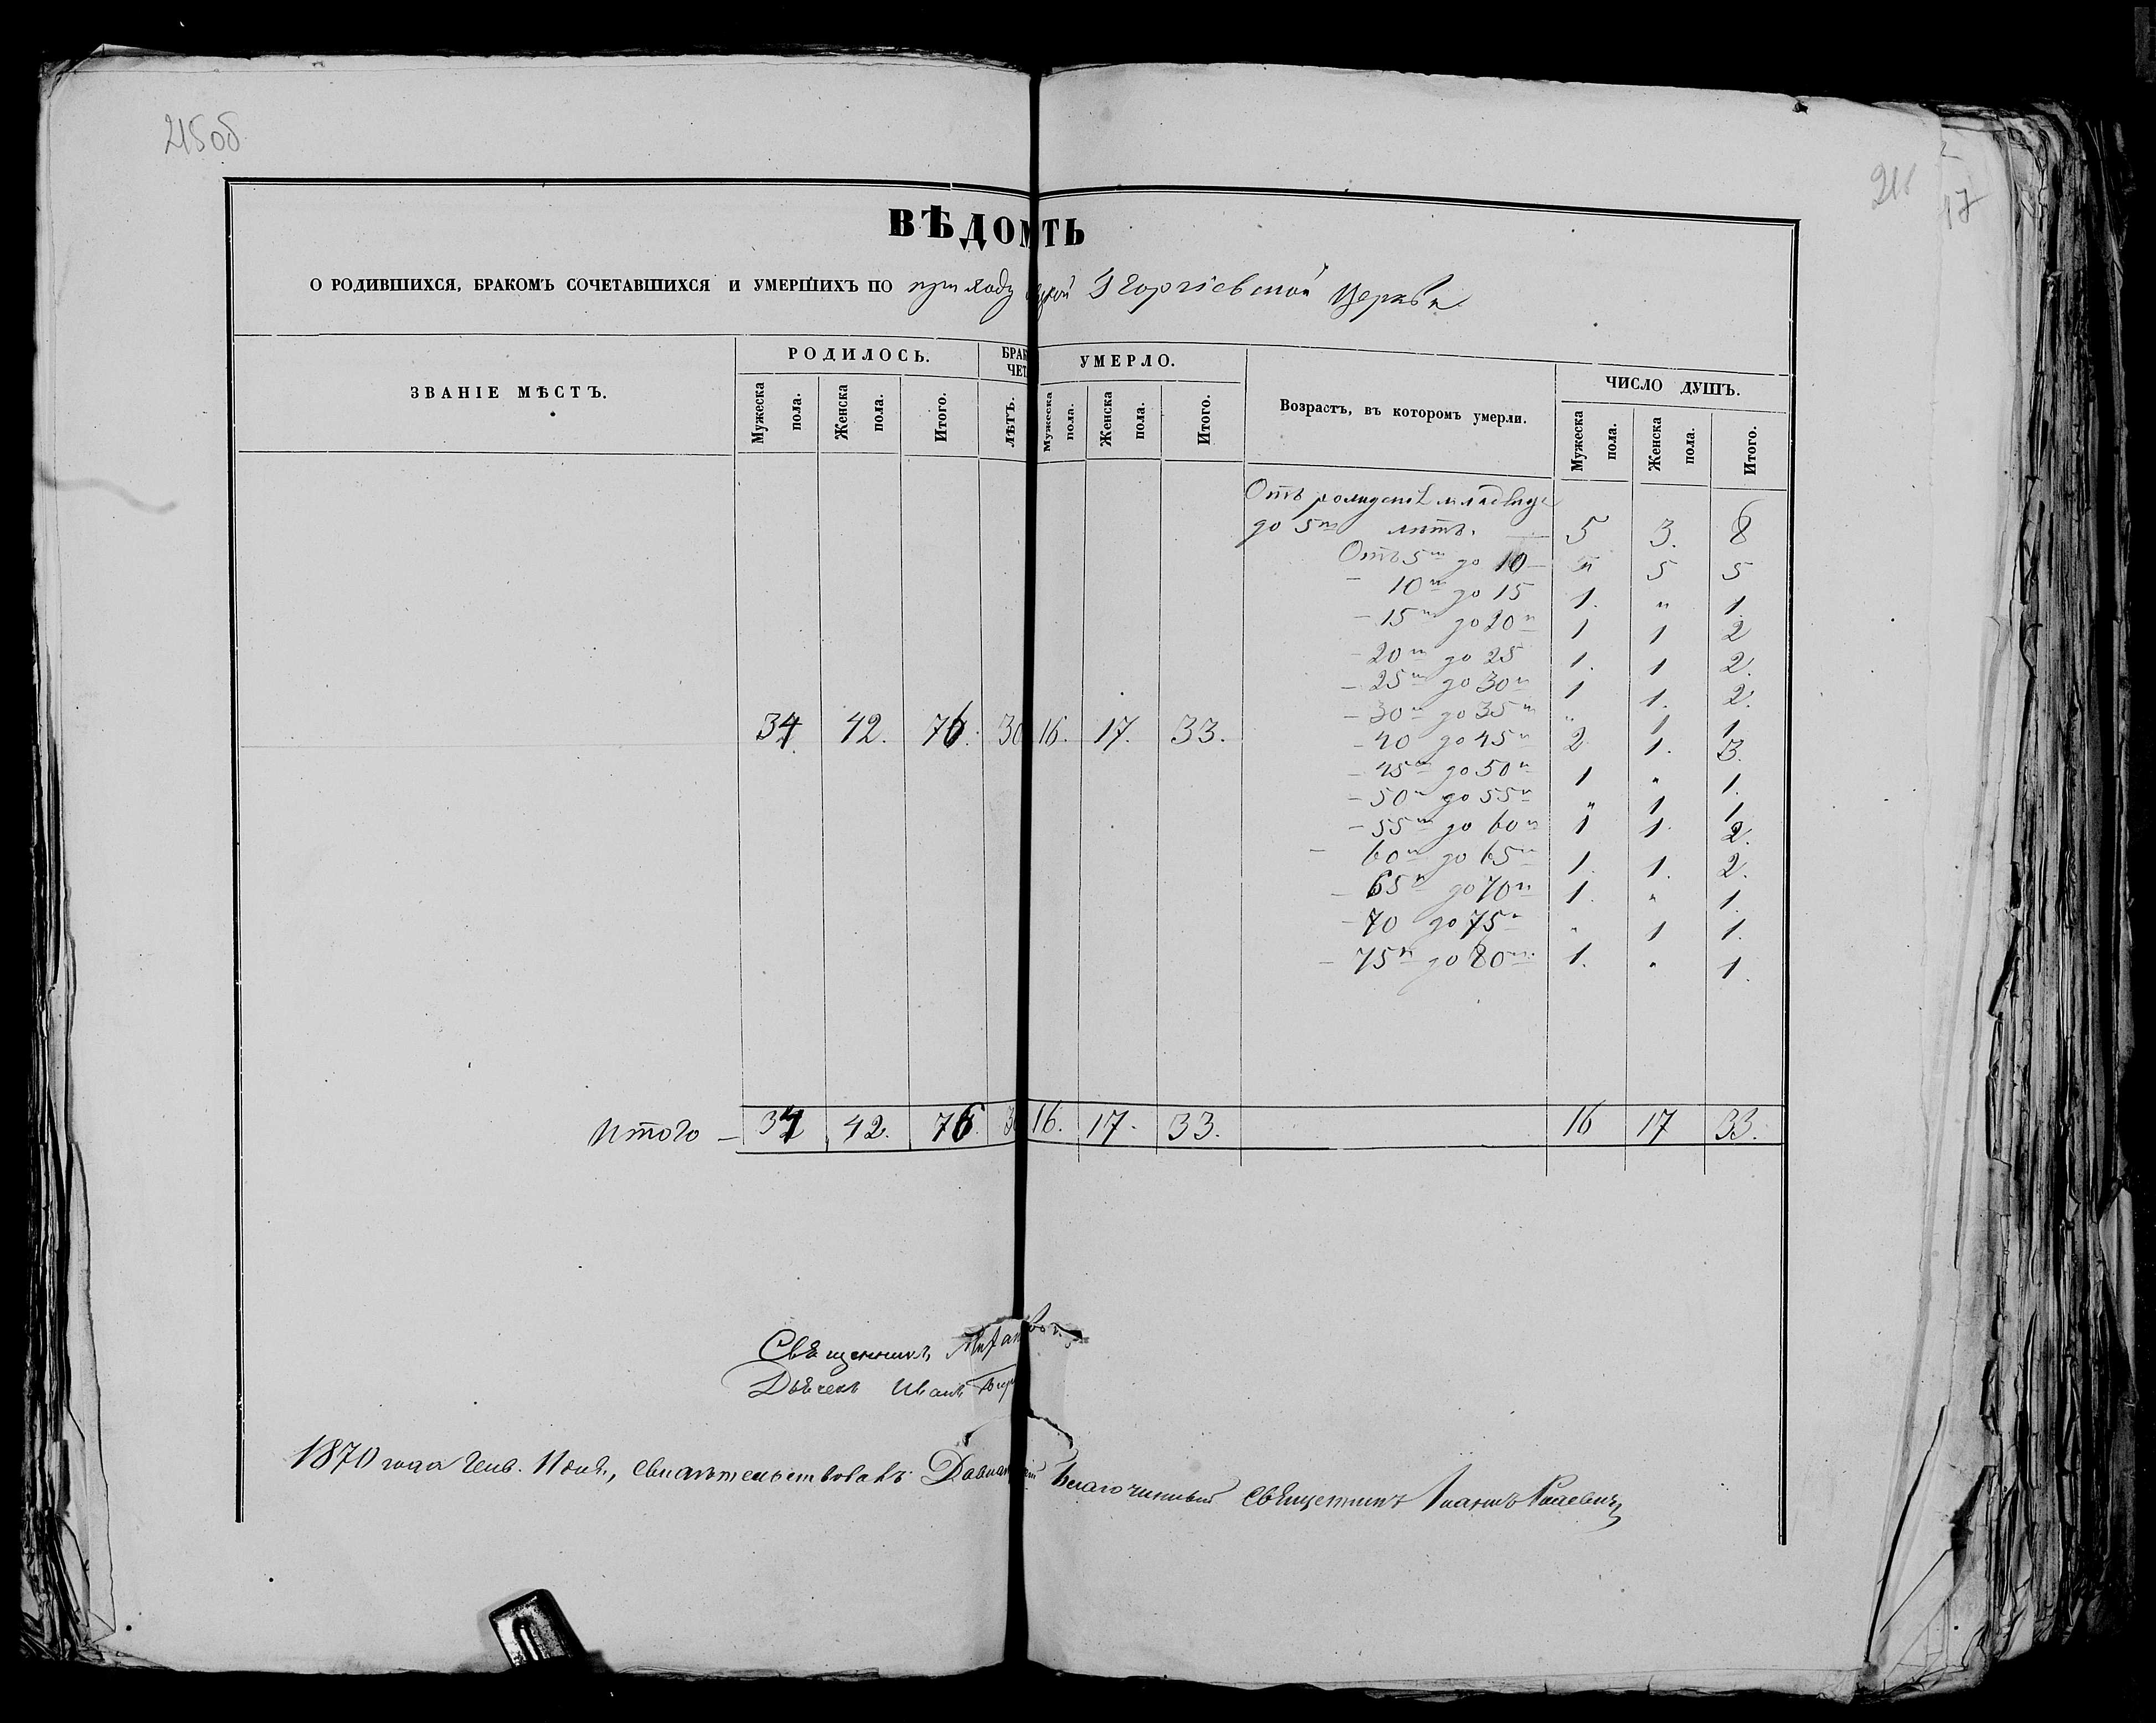 215об
ВѢДОМ ТЬ
О РОДИВШИХСЯ, БРАКОМЪ СОЧЕТАВШИХСЯ И УМЕРШИХЪ ПО приходу Георгіевской Церкви
ЗВАНІЕ МѢСТЪ.
РОДИЛОСЬ.
БРАК
ЧЕТ
УМЕРЛО.
Возрастъ, въ которомъ умерли.
ЧИСЛО ДУШЪ.
Мужеска пола.
Женска пола.
Итого.
ЛѢТЪ.
Мужеска пола.
Женска пола.
Итого.
Мужеска пола.
Женска пола.
Итого.
Отъ рожденія младенца
до 5ти лѣтъ. — 5 3. 8
Отъ 5ти до 10 — " 5 5
– 10ти до 15 1. " 1.
– 15ти до 20и 1 1 2
– 20ти до 25 1. 1 2.
– 25ти до 30и 1 1. 2.
– 30и до 35ти " 1 1.
34. 42. 76. 30 16. 17. 33.
– 40 до 45и 2. 1. 3.
– 45ти до 50и 1 " 1.
– 50и до 55и " 1 1.
– 55ти до 60и 1 1. 2.
– 60ти до 65ти 1. 1. 2.
– 65и до 70и 1. " 1.
– 70 до 75и " 1 1.
– 75и до 80ти 1. " 1.
Итого – 34 42. 76. 30 16. 17. 33. 16 17 33.
Священникъ
Дьячекъ Иванъ
1870 года Генв. 11 дня, свидѣтельствовалъ Благочинный Священникъ Іоаннъ